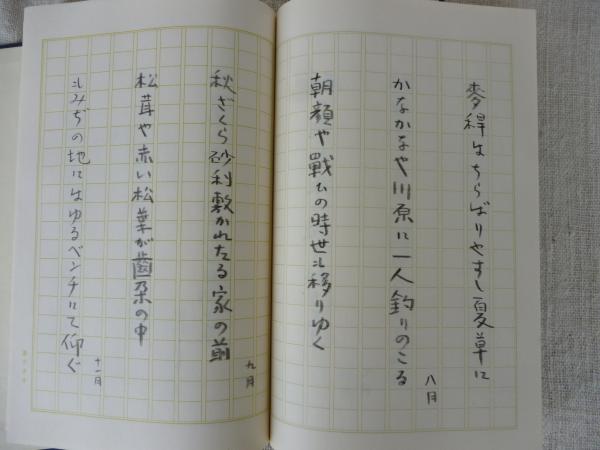 麥稈はちらばりやすし夏草に
かなかなや川原に一人釣りのこる
八月
朝顔や戰ひの時世も移りゆく
秋ざくら砂利敷かれたる家の前
九月
松茸や赤い松葉が齒朶の中
もみぢの地にはゆるベンチにて仰ぐ
十一月